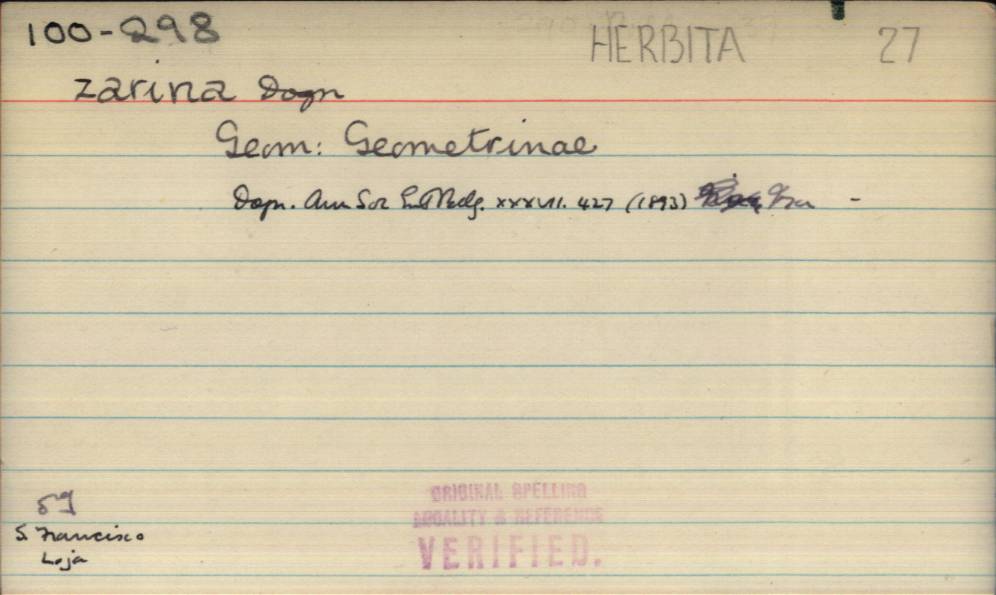 100-298
HERBITA 27
zarina Dogn
Geom: Geometrinae
Dogn. Ann Soc Ent Belg. xxxvii. 427 (1893) -
S. Francisco
Loja
ORIGINAL SPELLING
LOCALITY & REFERENCE
VERIFIED.